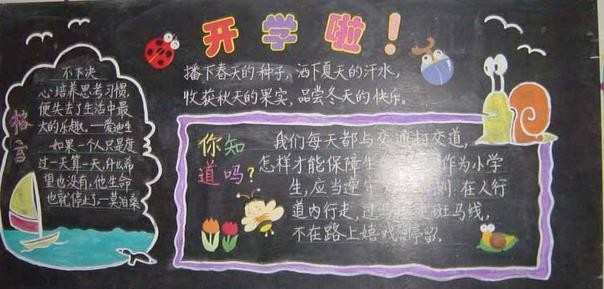 开学啦!
播下春天的种子,洒下夏天的汗水,
收获秋天的果实,品尝冬天的快乐。
格言
不下决
心培养思考习惯,
便失去了生活中最
大的乐趣。—爱迪生
如果一个人只是度
过一天算一天,什么希
望也没有,他生命
也就停止了—莫泊桑
你知
道吗?
我们每天都与交通打交道,
怎样才能保障生 作为小学
生,应当遵 则.在人行
道内行走,过 斑马线,
不在路上嬉戏 停留.